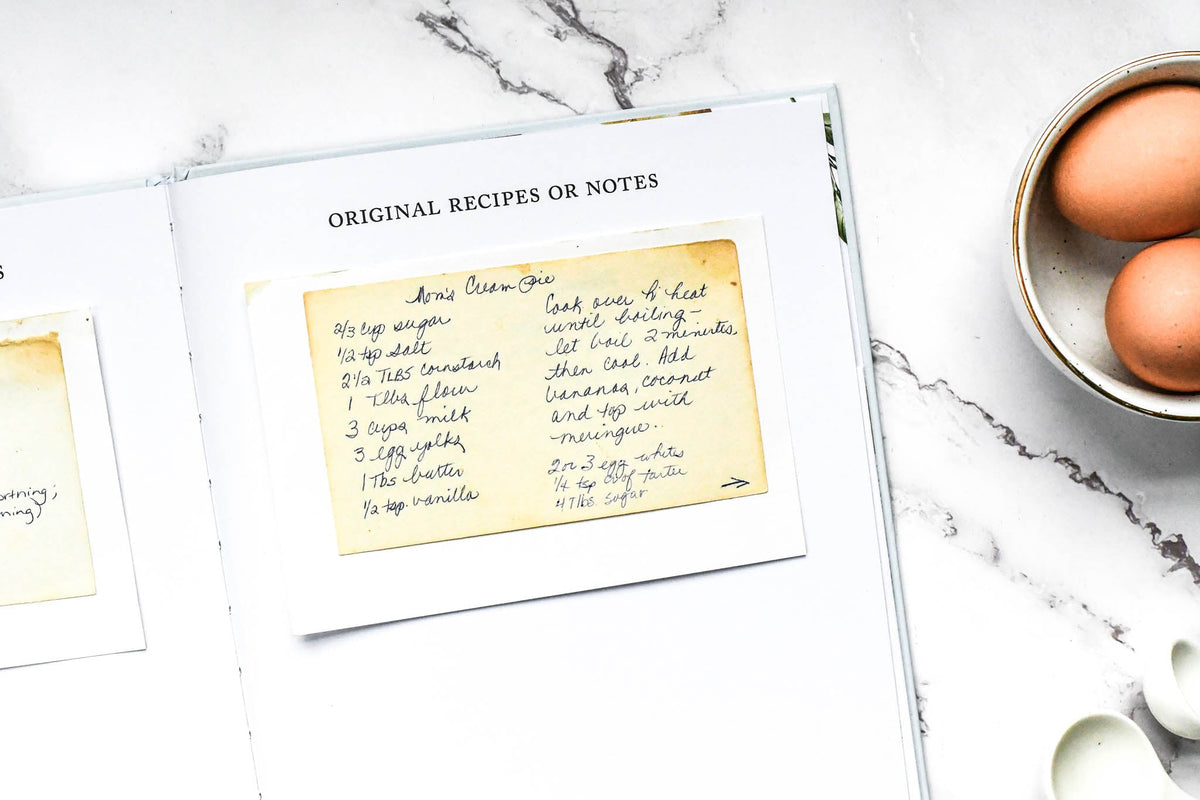 S
orthing;
ning)
ORIGINAL RECIPES OR NOTES
Mom's Cream Pie
2/3 cup sugar
1/2 tsp salt
2 1/2 TLBS cornstarch
1 Tlbs flour
3 cups milk
3 egg yolks
1 Tbs butter
1/2 tsp. vanilla
Cook over h' heat
until boiling-
let boil 2 minutes,
then cool. Add
bananas, coconut
and top with
meringue..
2 or 3 egg whites
1/4 tsp cr of tarter
4 Tlbs. sugar
→